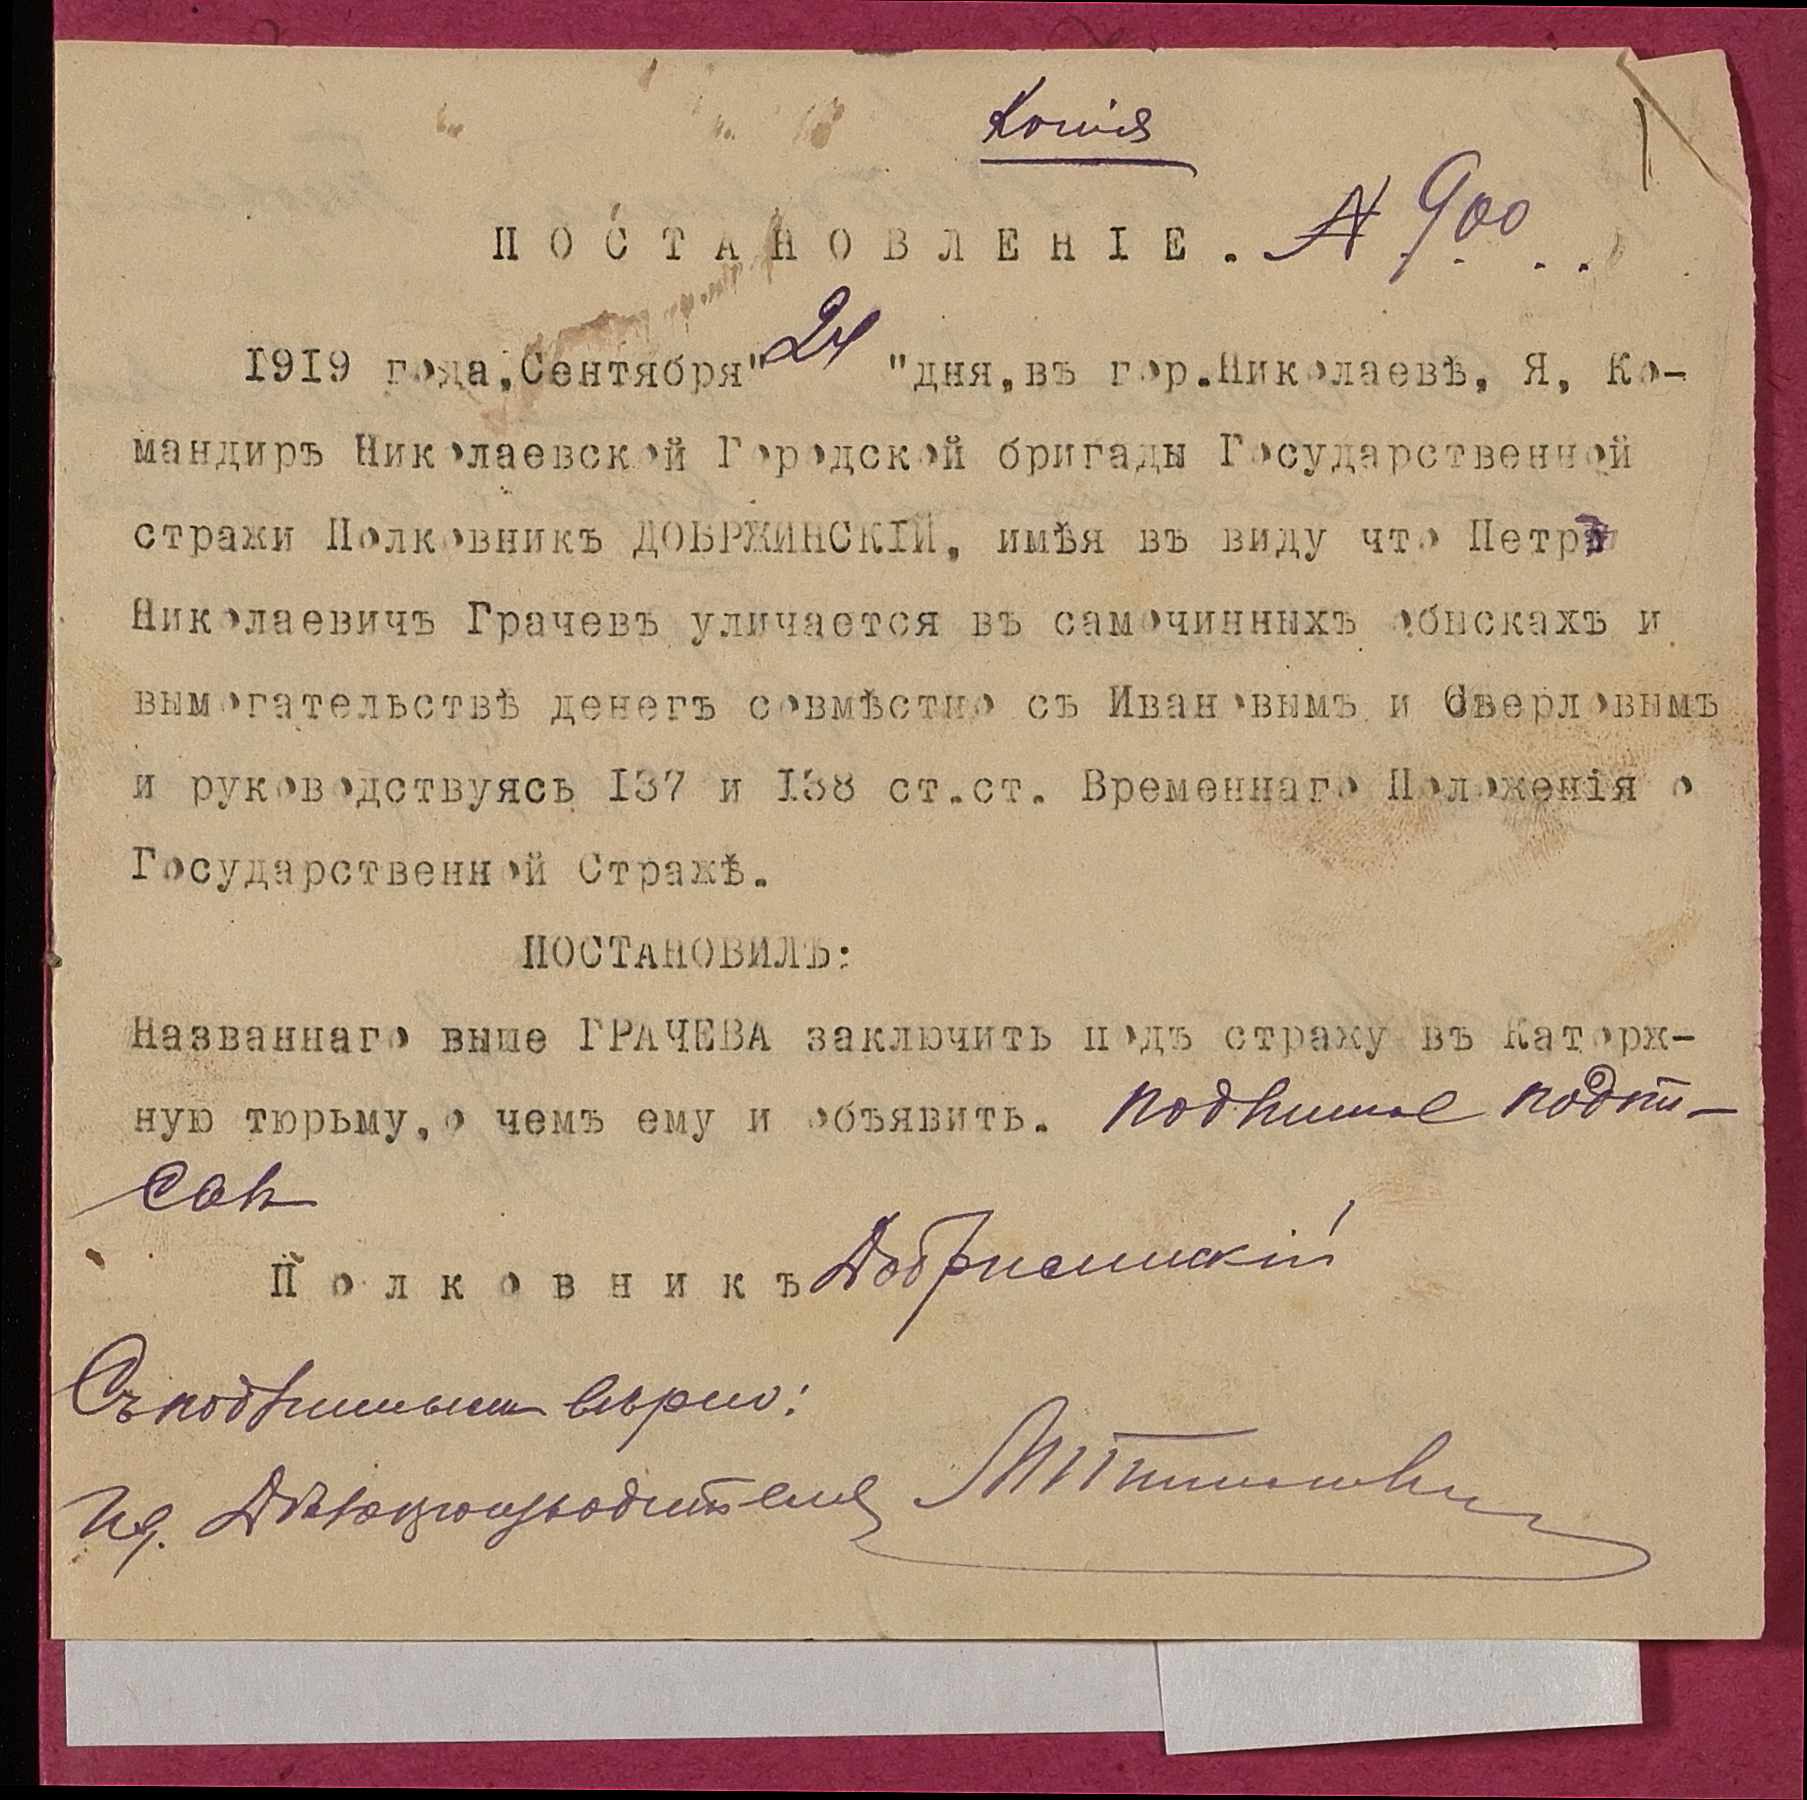 Копія
ПОСТАНОВЛЕНІЕ. № 900
1919 года, Сентября "24 "дня, въ гор. Николаевѣ, Я, Ко-
мандиръ Николаевской Городской бригады Государственной
стражи Полковникъ ДОБРЖИНСКІЙ, имѣя въ виду что Петръ
Николаевичъ Грачевъ уличается въ самочинныхъ обыскахъ и
вымогательствѣ денегъ совмѣстно съ Ивановымъ и Сверловымъ
и руководствуясь 137 и 138 ст.ст. Временнаго Положенія о
Государственной Стражѣ.
ПОСТАНОВИЛЪ:
Названнаго выше ГРАЧЕВА заключить подъ стражу въ Каторж-
ную тюрьму, о чемъ ему и объявить. подлинное подпи-
сал
Полковникъ Добржинскій
Съ подлиннымъ вѣрно:
Ид. Дѣлопроизводителя